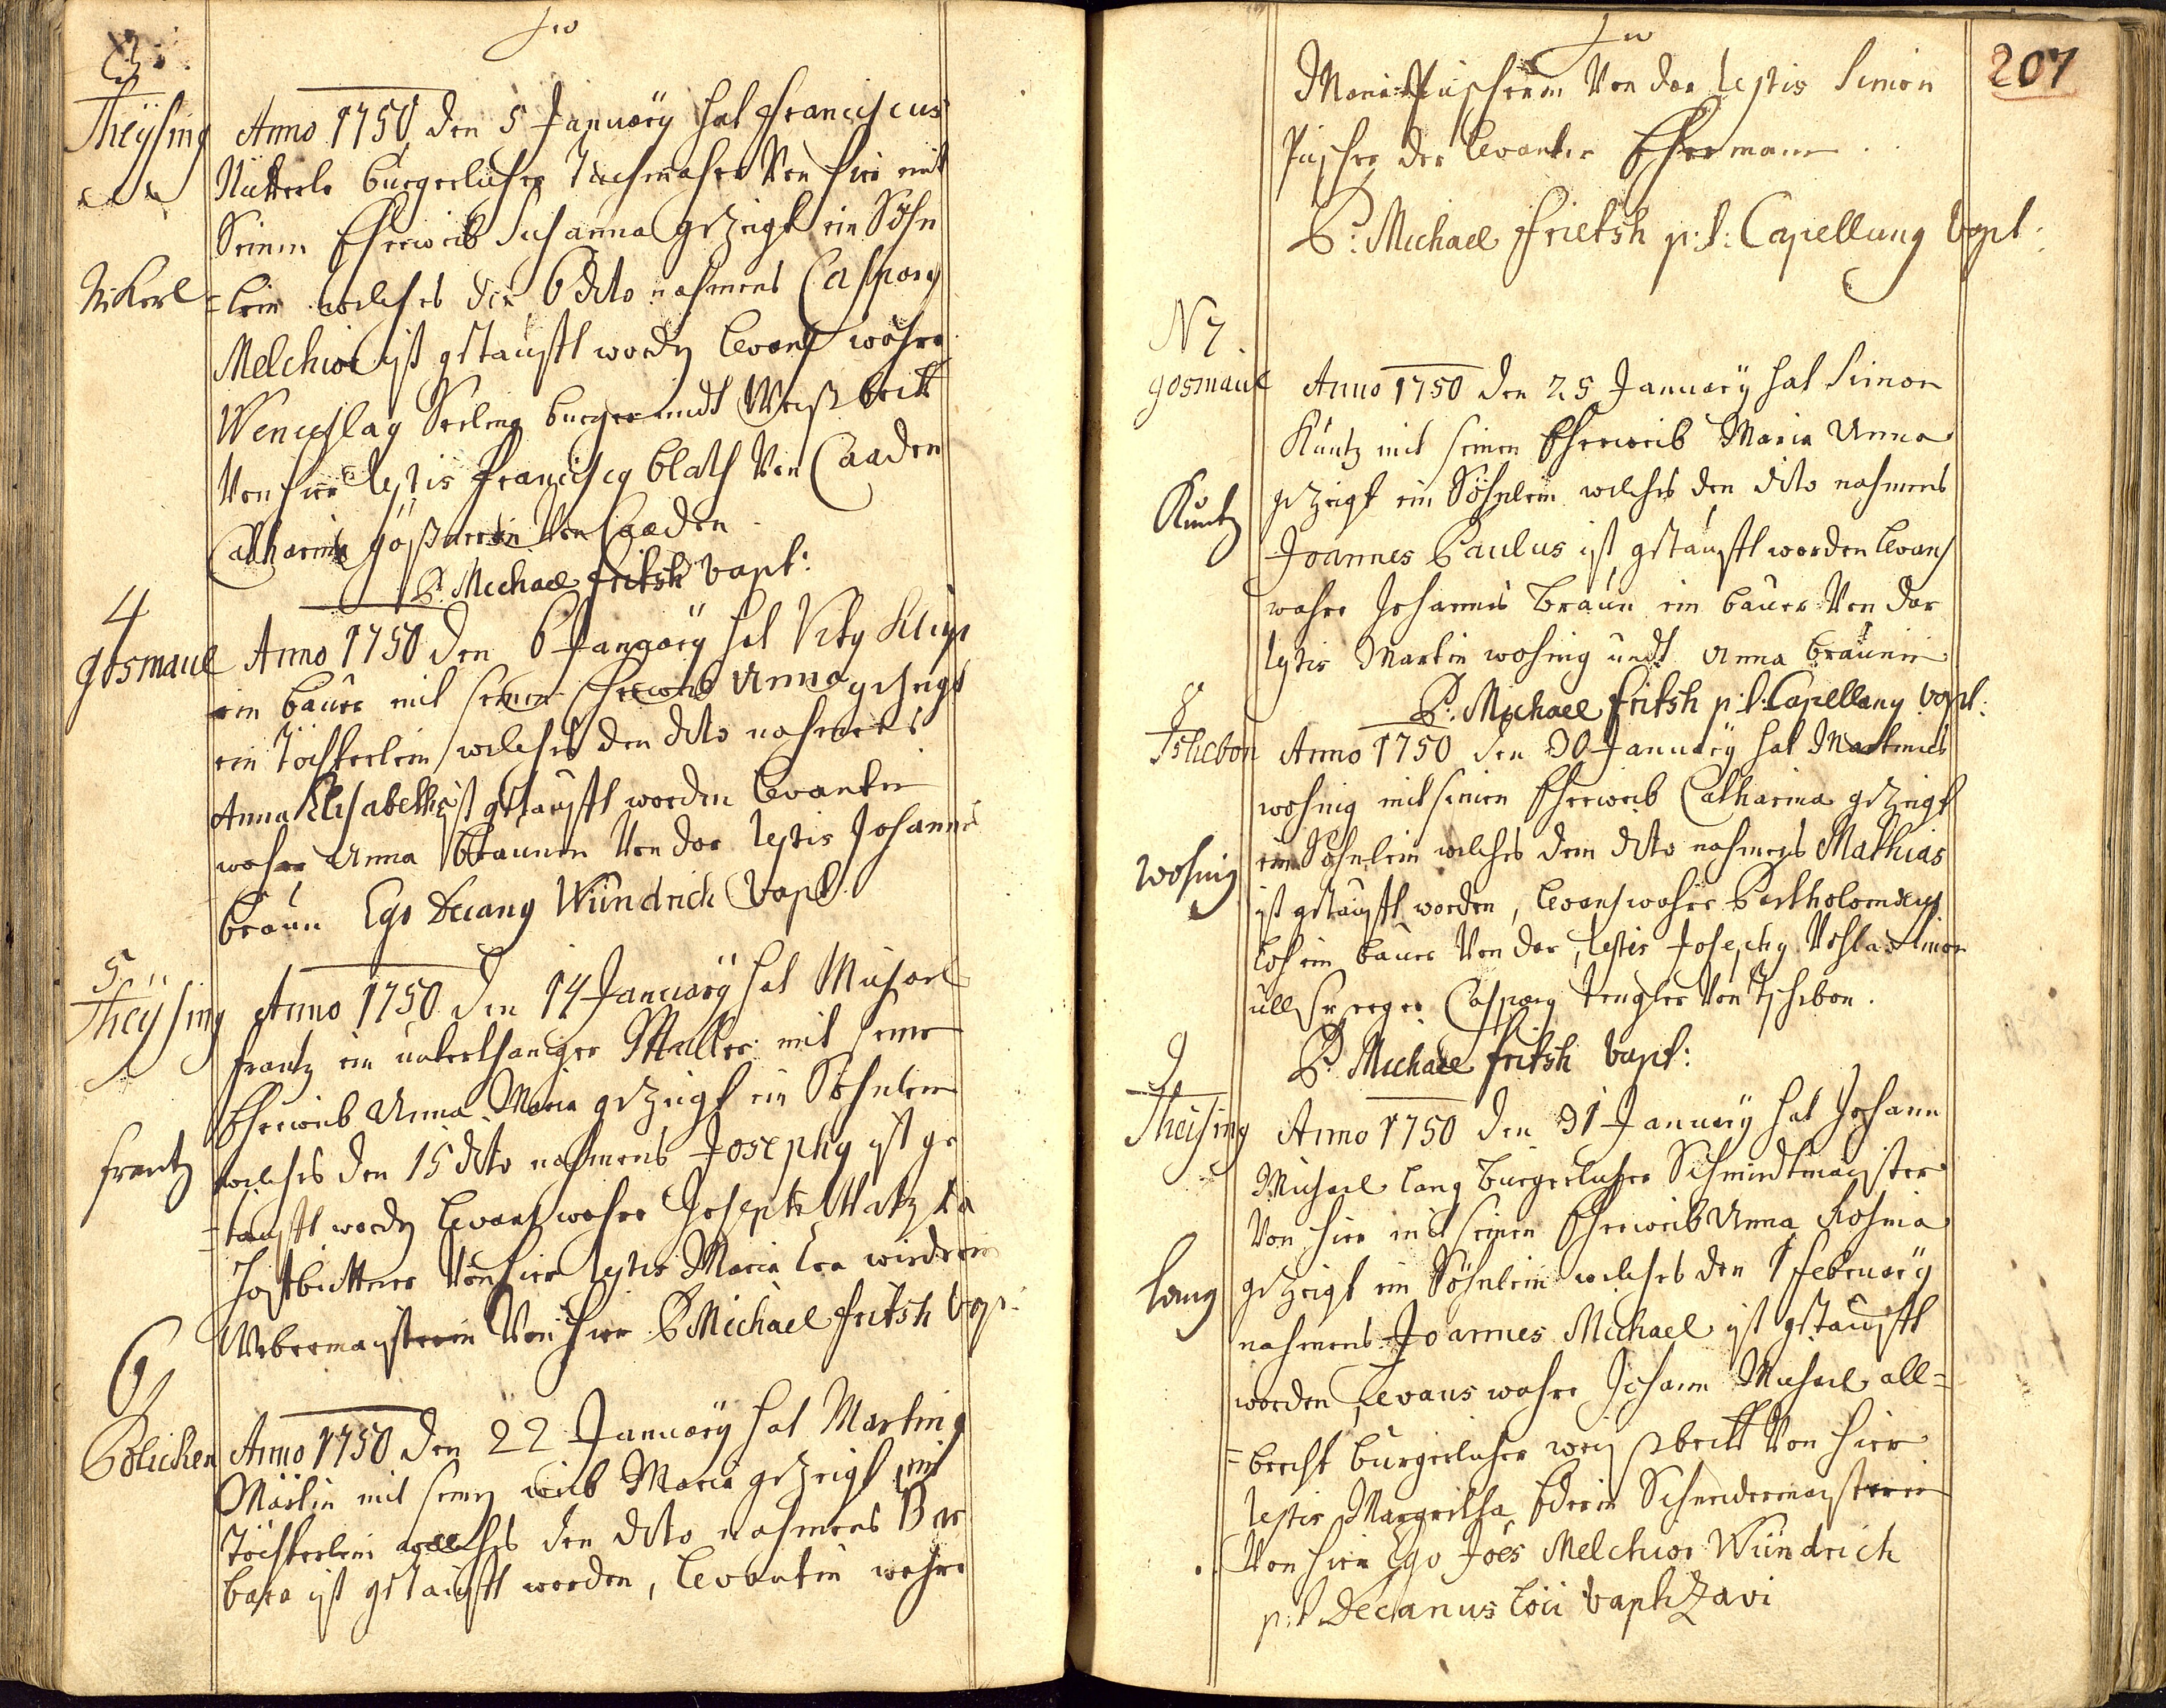 3
Theÿsing
Anno 1750 den 5 Januarÿ hat Franciscus
Nickerle burgerlicher Tuchmacher Von hier mit
Seinen Eheweib Susanna gezeigt ein Söhn
Nikerl
=lein welches den 6 dito nahmens Caspary
Melchior ist getaufft wordn Levans wahre
Wenceslaq burger undt Weißbeckh
Von hier testis Franciscq Von Caaden
Catharina Von Caaden
P. Michael Fritsh bapt:
4
gösmaul
Anno 1750 den 6 Januarÿ hat Vitq
ein baur mit seinen Eheweib Anna gezeigt
ein Töchterlein welches den dito nahmens
Anna Elisabetha ist getaufft worden Levantin
wahre Anna Braunin Von dar testis Johannes
Braun Ego Decanq Wündrich bapt.
5
Theÿsing
Anno 1750 den 14 Januarÿ hat Michael
Frantz ein unterthaniger Müller mit seine
Eheweib Anna Maria gezeigt ein Söhnlein
frantz
welches den 15 dito nahmens Josephq ist ge
=taufft wordn Levans wahre Joseph
Von hier testis Maria
Webermaisterin Von hier P Michael Fritsh bap
6
Polichen
Anno 1750 den 22 Januarÿ hat Martinq
Märtin mit seinen weib Maria gezeigt ein
Töchterlein welches den dito nahmens Bar
bara ist getaufft worden, Levantin wahre
207
Maria Fischerin Von dar testis Simon
Fischer der Levantin Ehemann.
P: Michael Frietsh p:t: Capellanq bapt:
N 7
gosmaul
Anno 1750 den 25 Januarÿ hat Simon
Kuntz mit seinen Eheweib Maria Anna
Kuntz
gezeigt ein Söhnlein welches den dito nahmens
Joannes Paulus ist getaufft worden Levans
wahre Johannes Braun ein bauer Von dar
testis Martin wohnig undt Anna Braunin
P: Michael Fritsh p:t: Capellanq bapt:
8
Tshebon
Anno 1750 den 30 Januarÿ hat Martinus
wohnig mit seinen Eheweib Catharina gezeigt
wohnig
ein Söhnlein welches dem dito nahmens Mathias
ist getaufft worden, Levans wahre Bartholomaeus
ein bauer Von dar, testis Josephq
Caspary Von Tschebon.
P: Michael Fritsh bapt:
9
Theising
Anno 1750 den 31 Januarÿ hat Johann
Michael Lang burgerlicher Schmidtmaister
Von hier mit seinen Eheweib Anna Rosina
Lang
gezeigt ein Söhnlein welches den 1 Februarÿ
nahmens Joannes Michael ist getaufft
worden, Levans wahre Johann Michael all=
=brecht burgerlicher weißbeckh Von hier
testis Margeritha Schneidermaisterin
Von hier Ego Joes Melchior Wündrich
p:t Decanus loci baptizavi